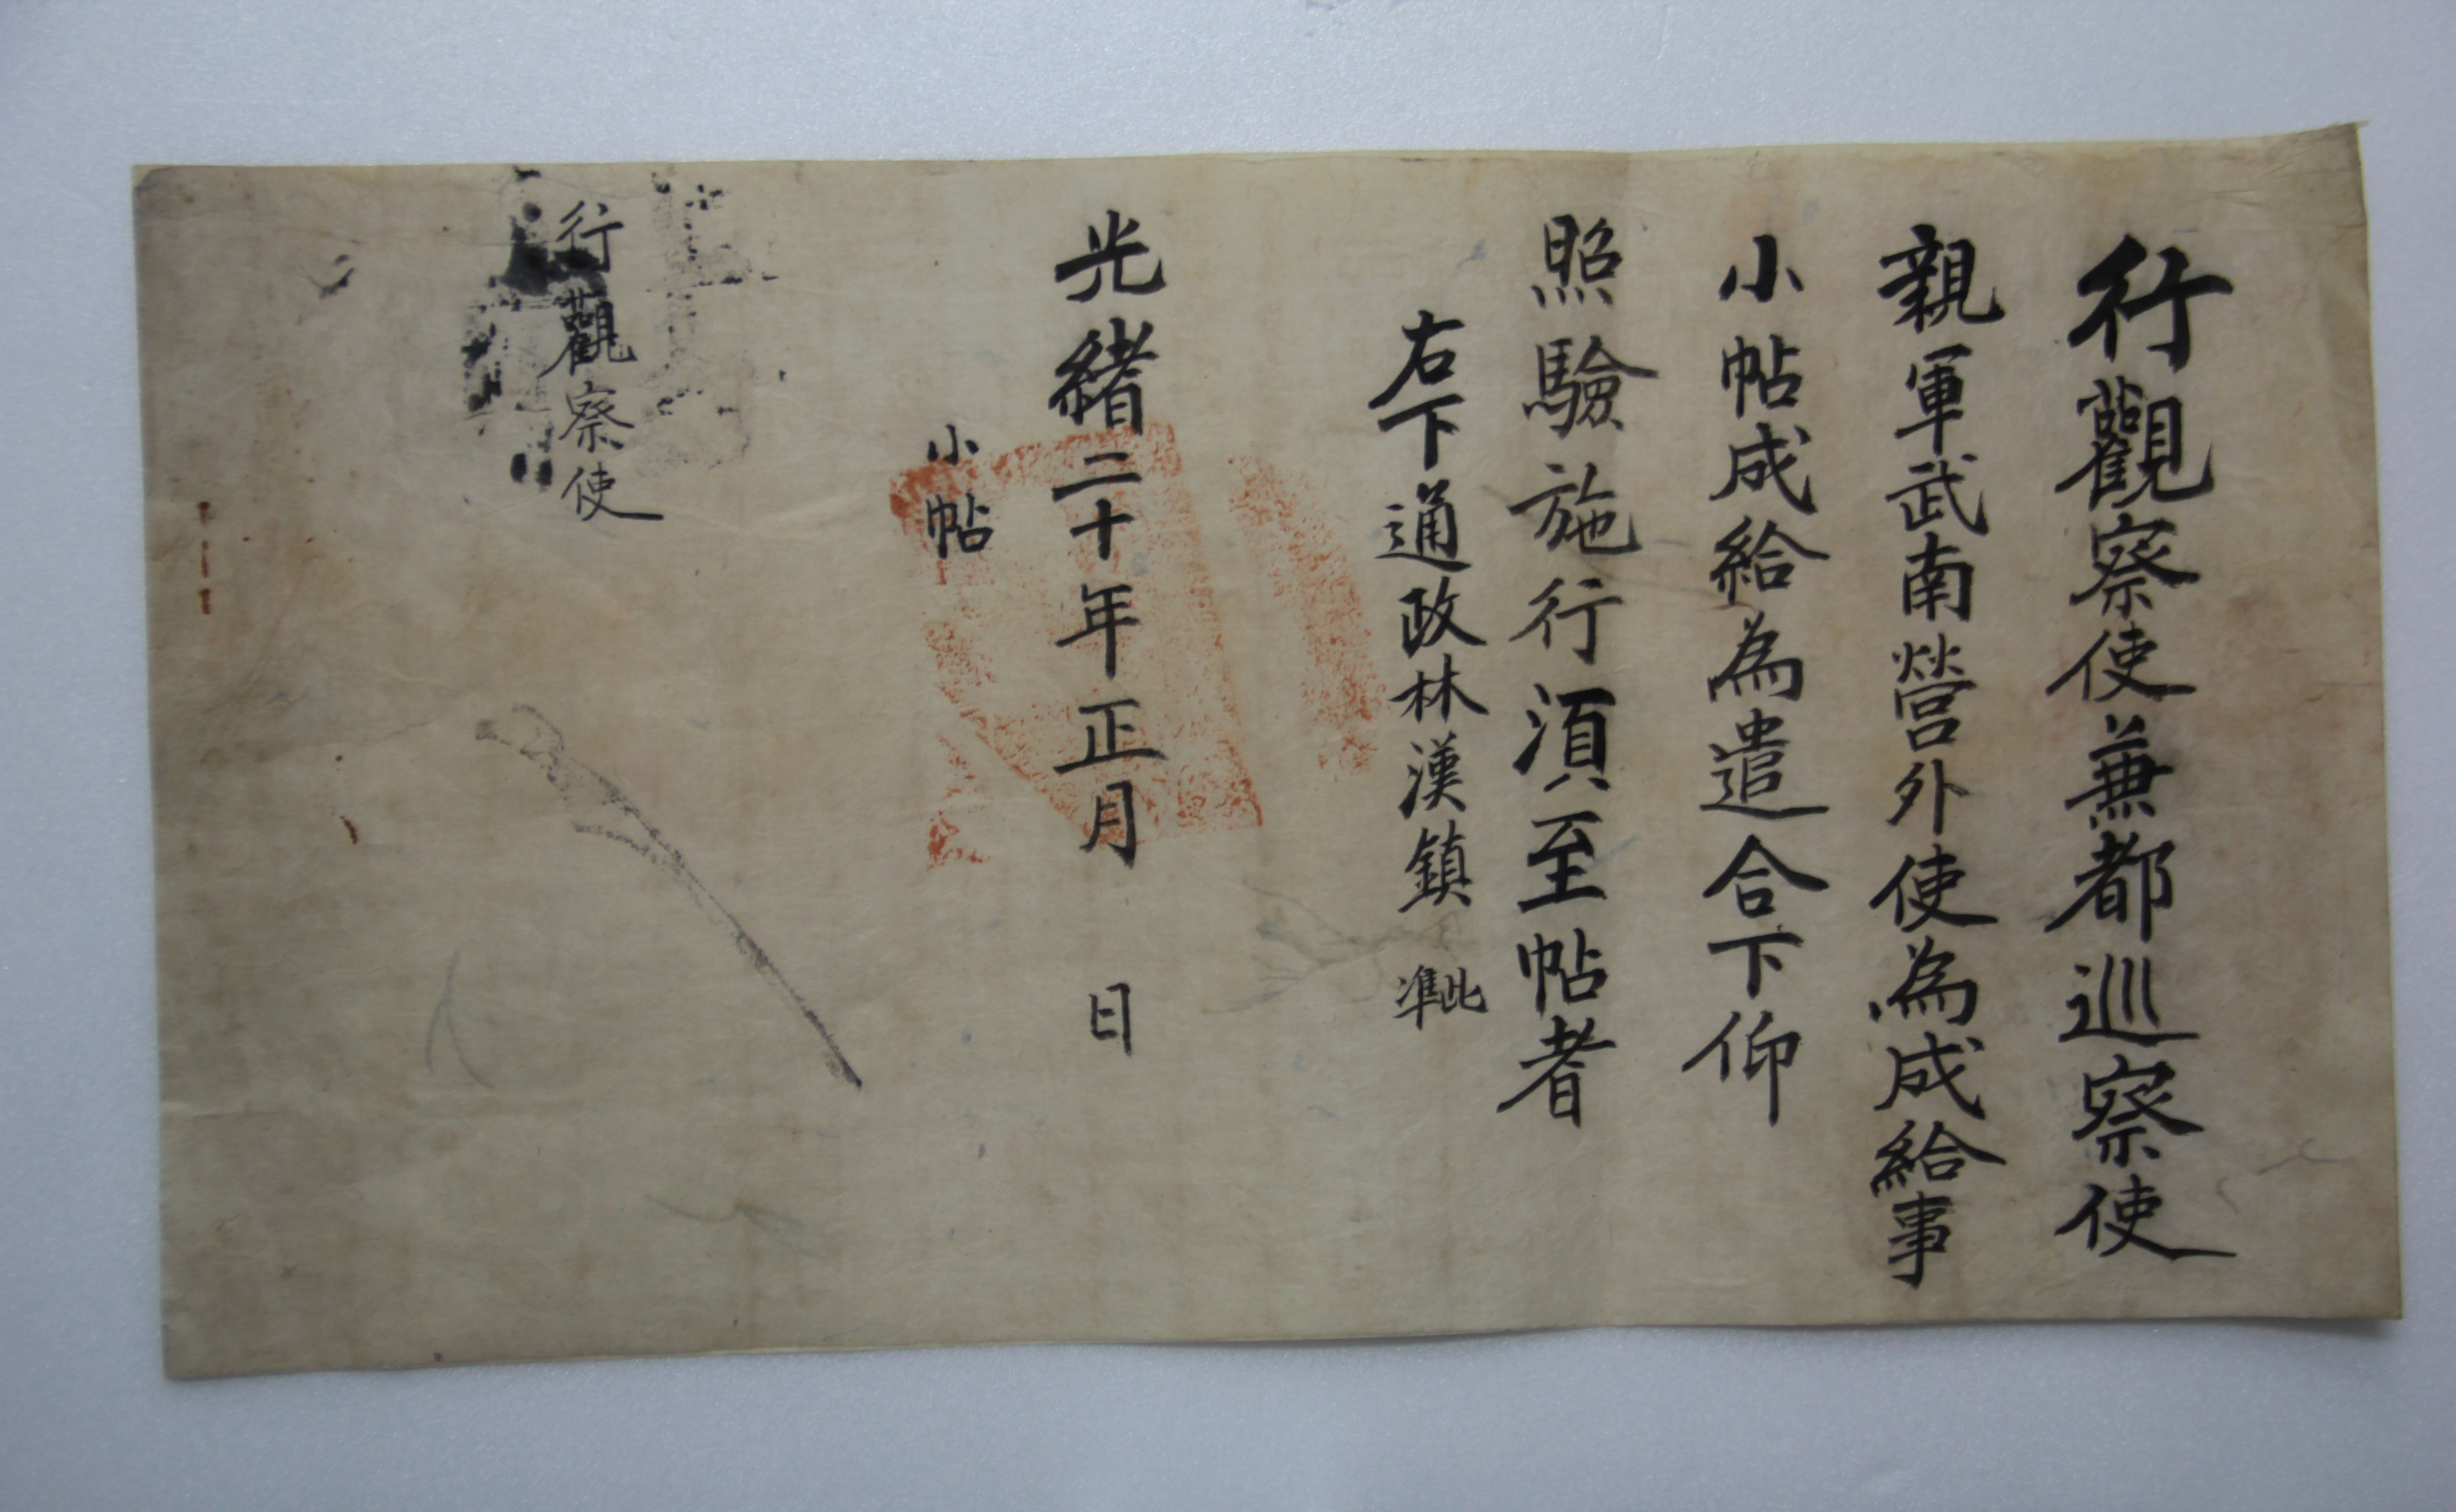 行觀察使兼都巡察使
親軍武南營外使為成給事
小帖成給為遣合下仰
照驗施行須至帖者
右下通政林漢鎮 準此
光緒二十年正月 日
小帖
行觀察使